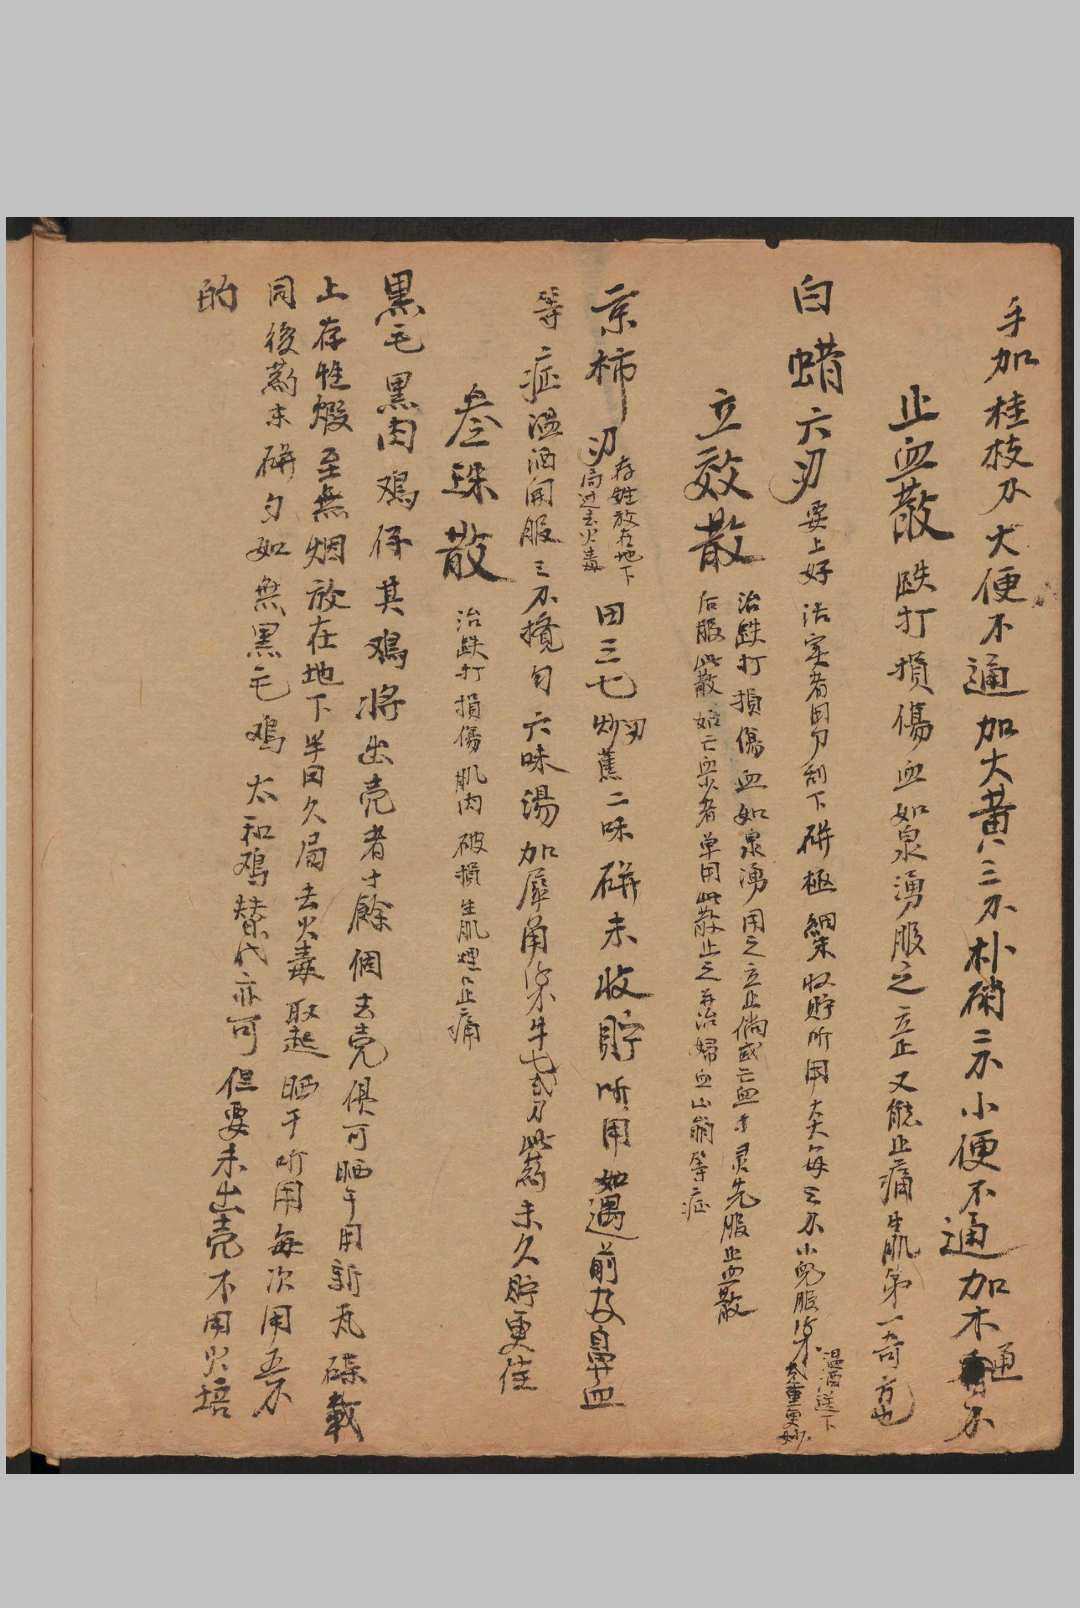 手加桂枝刀大便不通加大黃三刀朴硝二刀小便不通加木通刀
止血散 跌打損傷血如泉湧服之立止又能止痛生肌第一奇方也
白蜡六刃 要上好 法實者用刀刮下研極細末收貯所用大人每三刀小児服
溫酒送下
童更妙
立效散
治跌打損傷血如泉湧用之立止倘或亡血不灵先服止血散
后服此散如亡血少者单用此散止之再治婦血山崩等症
京柿刃
存性放在地下
局过去火毒
田三七刃炒蕉二味研末收貯所用如遇前及鼻血
等症溫酒開服三刀攪勻六味湯加犀角牛七貳刀此藥末久貯更佳
叁珠散 治跌打損傷肌肉破損生肌埋口止痛
黑毛黑肉鸡仔其鸡將出壳者十餘個去壳俱可晒干用新瓦碟載
上存性煅至無烟放在地下半日久局去火毒取起晒干所用每次用五刀
同後藥末研勻如無黑毛鸡太和鸡替代亦可但要未出壳不用火培
的